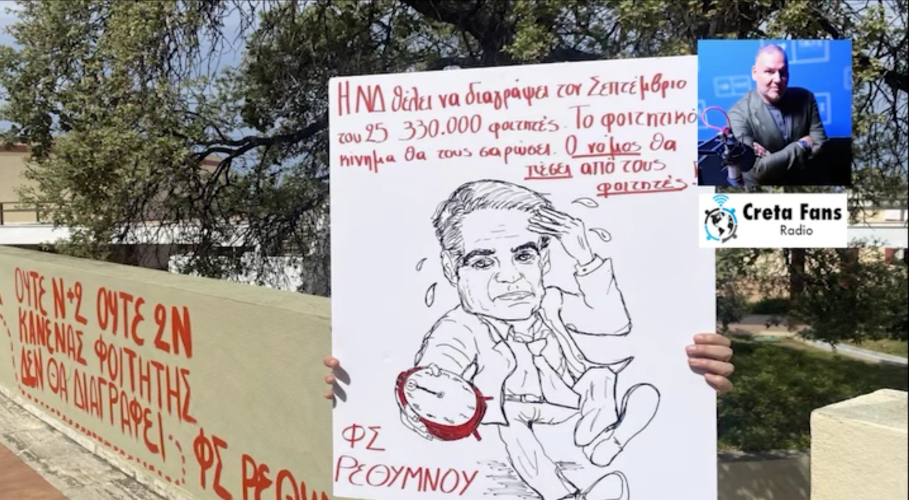 Η ΝΔ θέλει να διαγράψει τον Σεπτέμβριο
του 25 330.000 φοιτητές. Το φοιτητικό
κίνημα θα τους σαρώσει. Ο νόμος θα
πέσει από τους
φοιτητές!
ΦΣ
ΡΕΘΥΜΝΟΥ
ΟΥΤΕ Ν+2 ΟΥΤΕ 2Ν
ΚΑΝΕΝΑΣ ΦΟΙΤΗΤΗΣ
ΔΕΝ ΘΑ ΔΙΑΓΡΑΦΕΙ
ΦΣ ΡΕΘΥΜ
Creta Fans
Radio